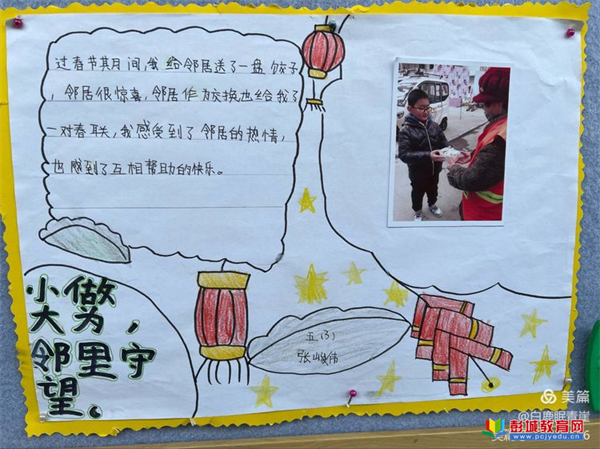 过春节其月间,我给邻居送了一盘饺子
,邻居很惊喜,邻居作为交换也给我了
一对春联,我感受到了邻居的热情,
也感到了互相帮助的快乐。
小做
大为,
邻里守
望。
五(3)
张峻伟
美篇
@白鹿眠青崖
彭城教育网
www.pcjyedu.cn
6